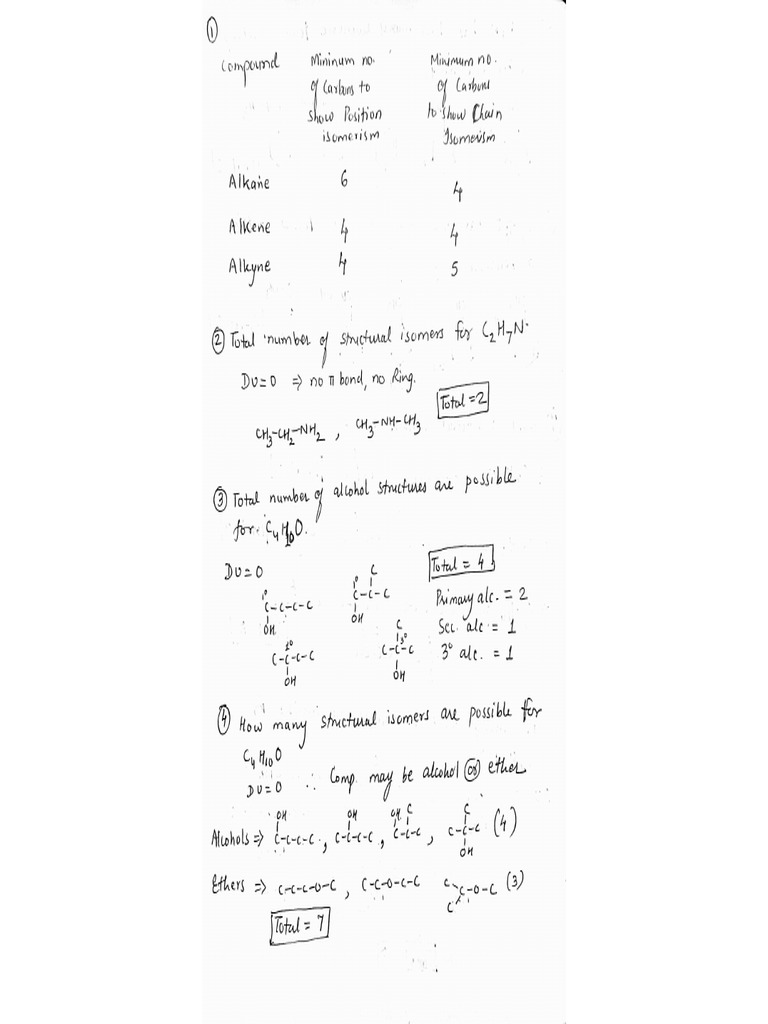 ①
Compound Mininum no. Minimum no.
of Carbons to of Carbons
show Position to show Chain
isomerism Isomerism
Alkane 6 4
Alkene 4 4
Alkyne 4 5
② Total number of structural isomers for C₂H₇N.
DU=0 ⇒ no π bond, no Ring.
Total = 2
CH₃-CH₂-NH₂ , CH₃-NH-CH₃
③ Total number of alcohol structures are possible
for C₄H₁₀O.
DU=0 Total = 4
1° C
C-C-C-C 1° C-C-C Primary alc. = 2
OH OH
C Sec. alc = 1
2° 3°
C-C-C-C C-C-C 3° alc. = 1
OH OH
④ How many structural isomers are possible for
C₄H₁₀O
DU=0 ∴ Comp. may be alcohol or ether
OH OH OH C C
Alcohols ⇒ C-C-C-C , C-C-C-C , C-C-C , C-C-C (4)
OH
Ethers ⇒ C-C-C-O-C , C-C-O-C-C C C-O-C (3)
C
Total = 7